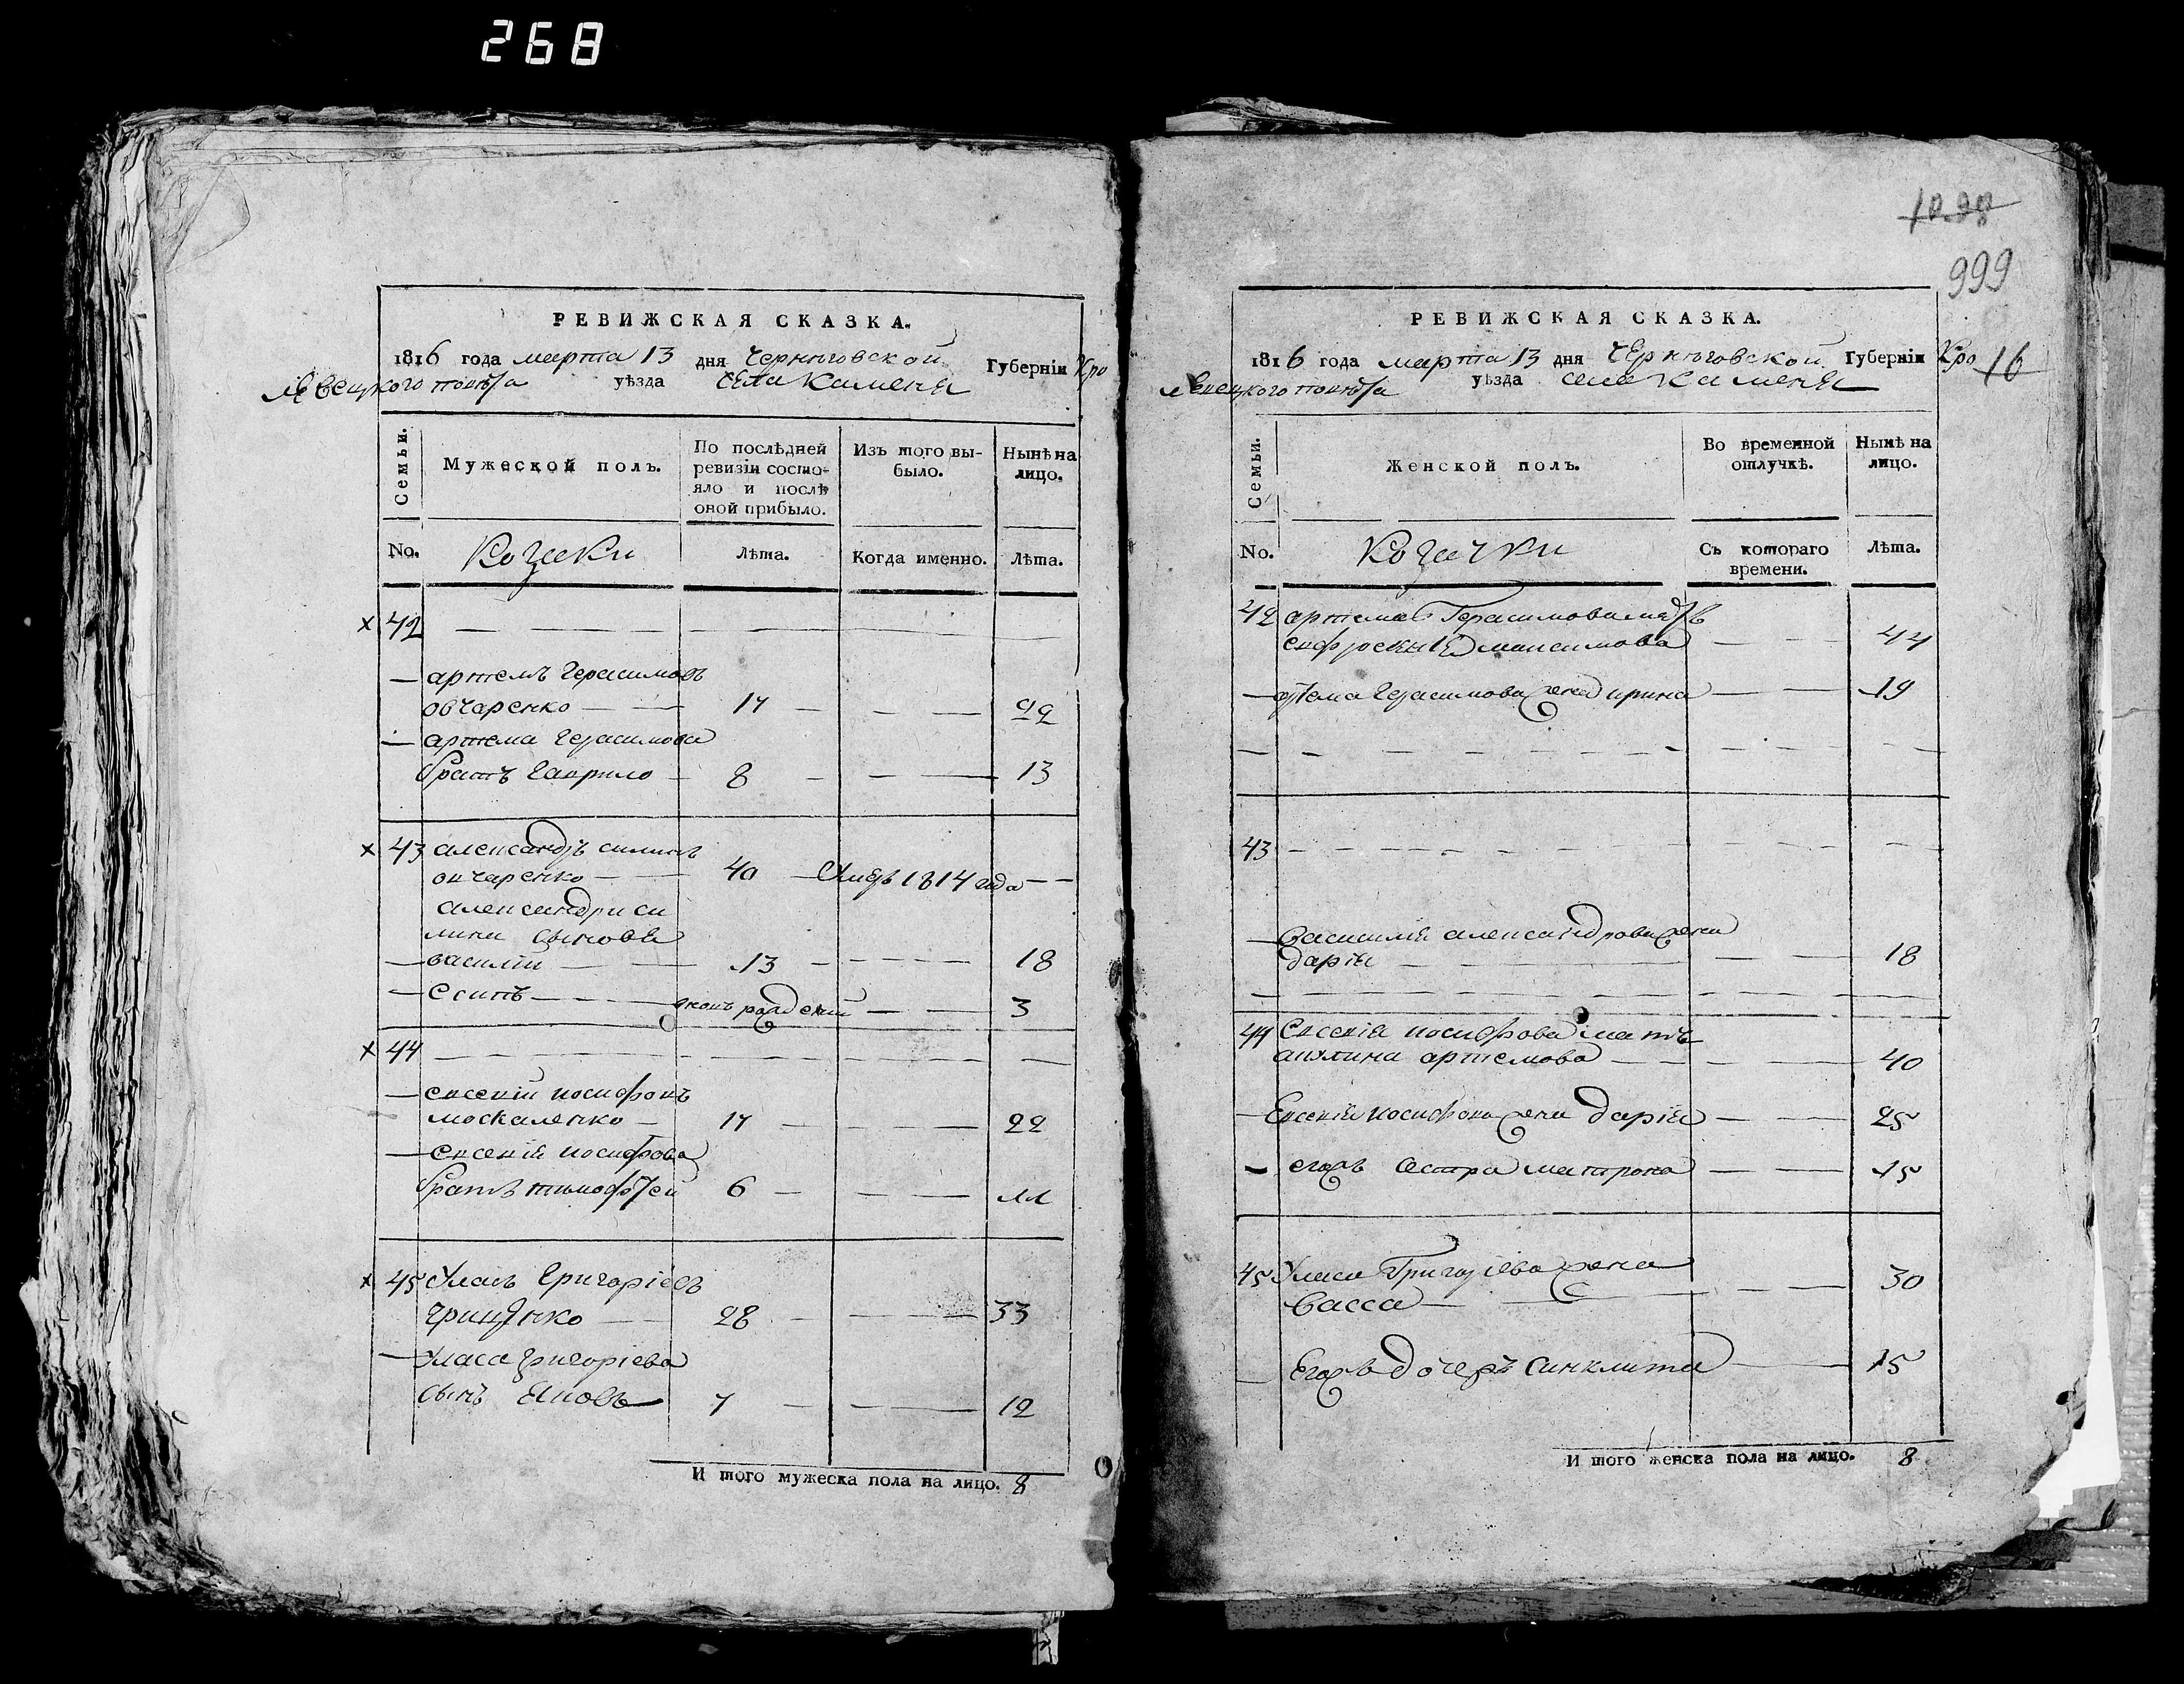 268
РЕВИЖСКАЯ СКАЗКА.
1816 года марта 13 дня Черниговской Губерніи Кро
левецкого повѣта уѣзда села Каменя
Семьи.
Мужеской полъ.
По послѣдней ревизіи состо-
яло и послѣ оной прибыло.
Изъ того вы-
было.
Нынѣ на
лицо.
No.
Козаки
Лѣта.
Когда именно.
Лѣта.
х 42
артемъ Герасимовъ
овчаренко 17 22
артема Герасимова
братъ гаврило 8 13
х 43 александръ силинъ
овчаренко 40 Умеръ 1814 года
александра си
лина сынове
василій 13 18
есипъ вновь рожденій 3
х 44
евсевій иосифовъ
москаленко 17 22
евсевія иосифова
братъ тимофѣй 6 11
х 45 Уласъ Григоріевъ
гриценко 28 33
Уласа григоріева
сынъ яковъ 7 12
И того мужеска пола на лицо. 8
999
РЕВИЖСКАЯ СКАЗКА.
1816 года марта 13 дня Черниговской Губерніи Кро
16
левецкого повѣта уѣзда села Каменя
Семьи.
Женской полъ.
Во временной
отлучкѣ.
Нынѣ на
лицо.
No.
Козачки
Съ котораго
времени.
Лѣта.
42 артема Герасимова
евфросинія максимова 44
артема Герасимова жена ирина 19
43
василія александрова жена
дарія 18
44 евсевія иосифова мать
акилина артемова 40
Евсевія иосифова жена дарія 25
егожъ сестра матрона 15
45 Уласа Григоріева жена
васса 30
Егожъ дочеръ синклита 15
И того женска пола на лицо. 8